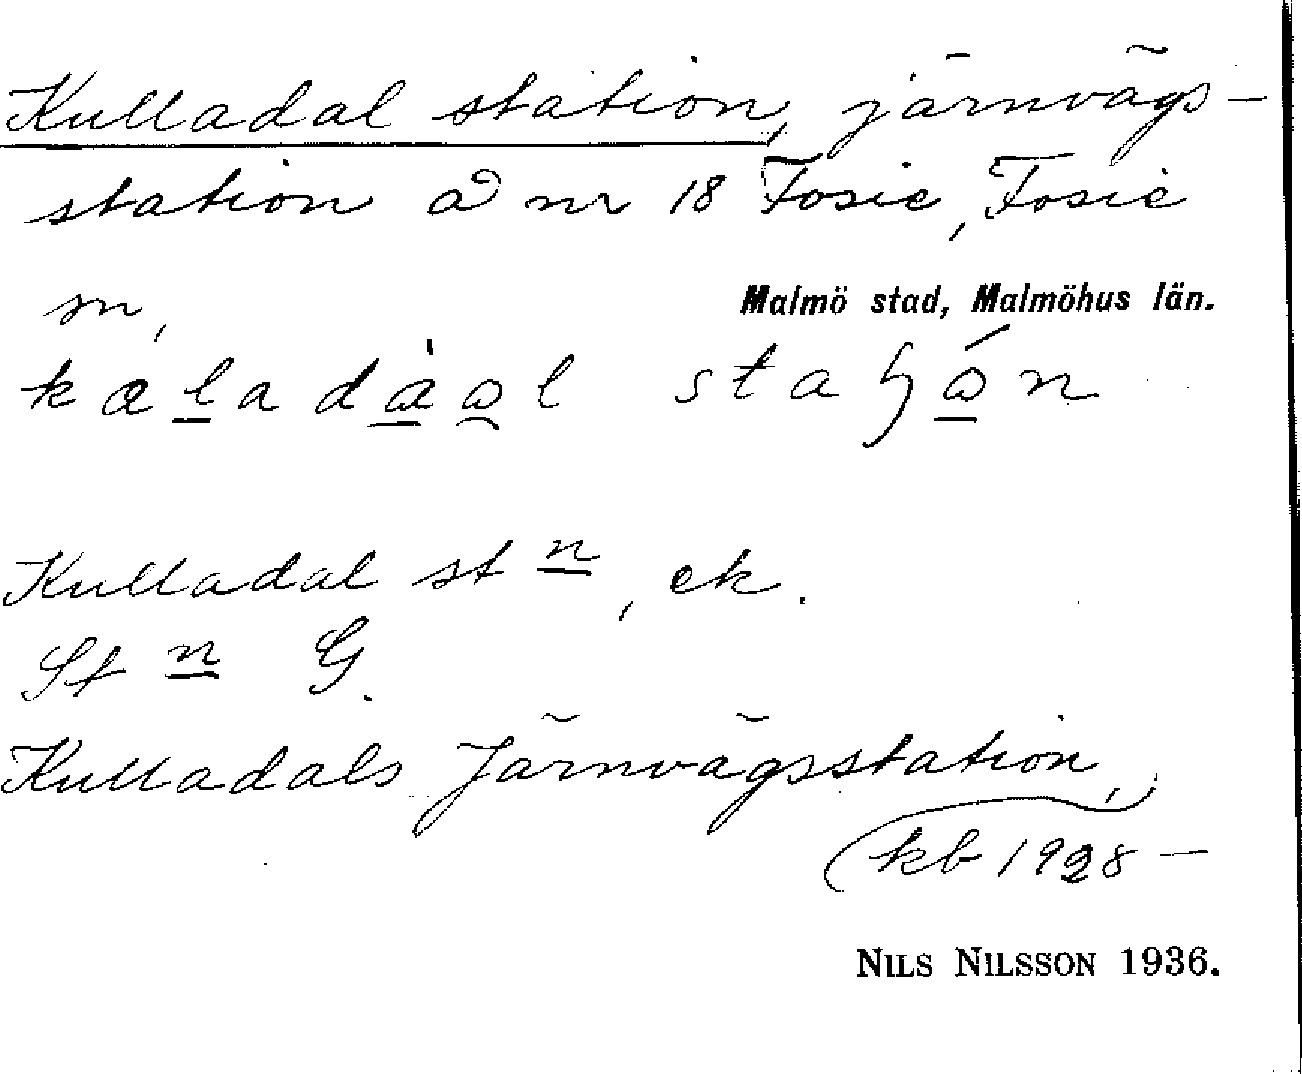 Kulladal station, järnvägs-
station å nr 18 Fosie, Fosie
sn,
Malmö stad, Malmöhus län.
Kulladal st n, ek.
St n G.
Kulladals Järnvägsstation,
(kb 1928 —
NILS NILSSON 1936.